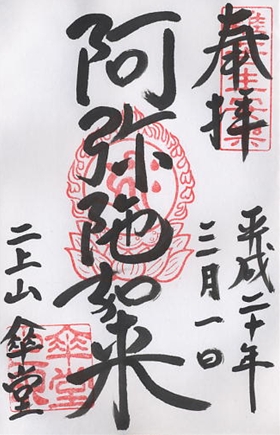 奉拝
平成二十年
三月一日
阿弥陀如来
二上山 傘堂
傘堂